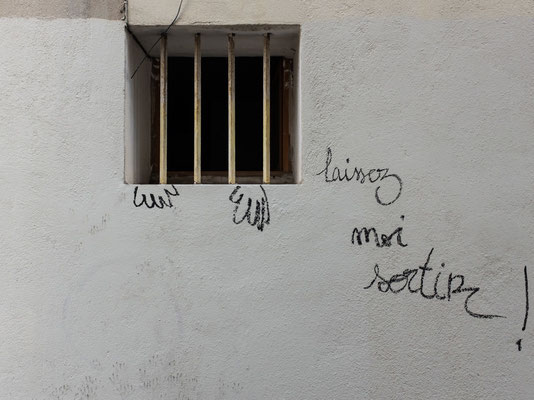 laissez
moi
sortir !